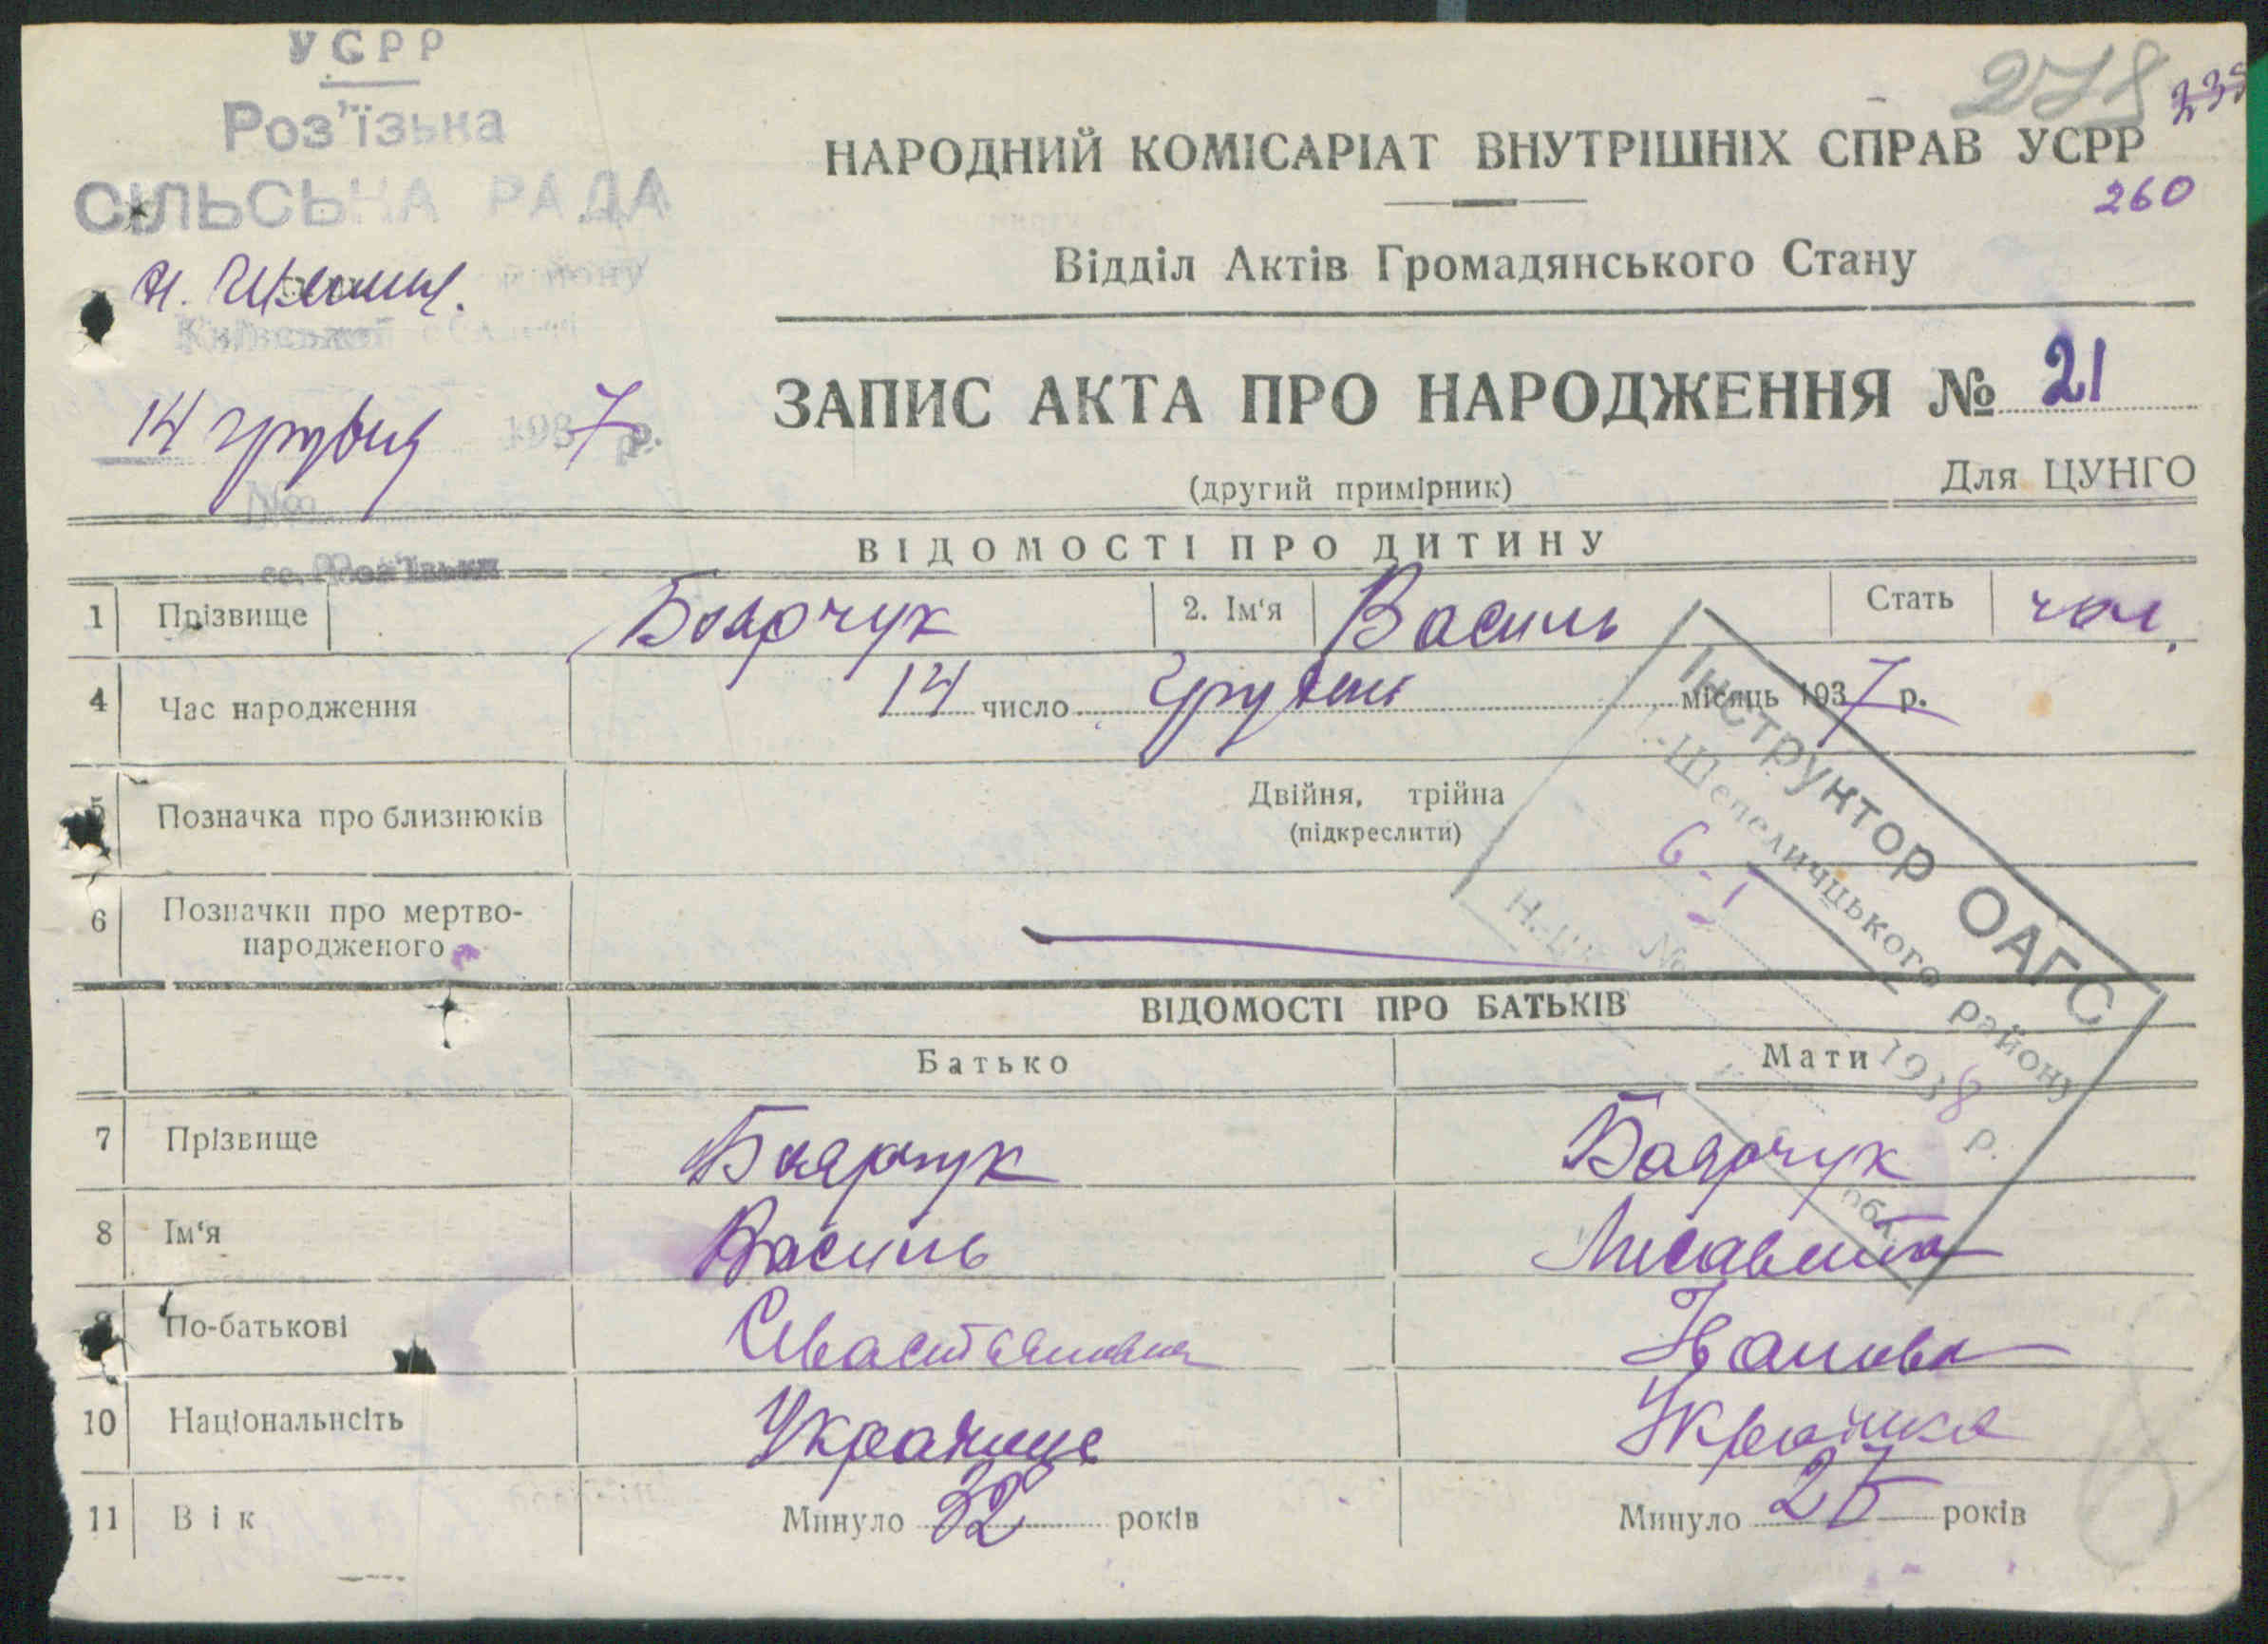 УСРР
Роз'їзька
СІЛЬСЬКА РАДА
Н. Шепелиц. району
Київської області
14 грудня 1937 р.
№
с. Роз'їзьке
278
260
НАРОДНИЙ КОМІСАРІАТ ВНУТРІШНІХ СПРАВ УСРР
Відділ Актів Громадянського Стану
ЗАПИС АКТА ПРО НАРОДЖЕННЯ № 21
(другий примірник)
Для ЦУНГО
ВІДОМОСТІ ПРО ДИТИНУ
1 Прізвище Боярчук 2. Ім'я Василь Стать чол.
4 Час народження 14 число Грудень місяць 1937 р.
5 Позначка про близнюків Двійня, трійна
(підкреслити)
6 Позначки про мертво-
народженого
Інструктор ОАГС
Н.-Шепеличцького району
6-I 1938 р.
№
обл.
ВІДОМОСТІ ПРО БАТЬКІВ
Батько Мати
7 Прізвище Боярчук Боярчук
8 Ім'я Василь Лисавита
9 По-батькові Івановна
10 Національнсіть Українец Українка
11 Вік Минуло 32 років Минуло 25 років